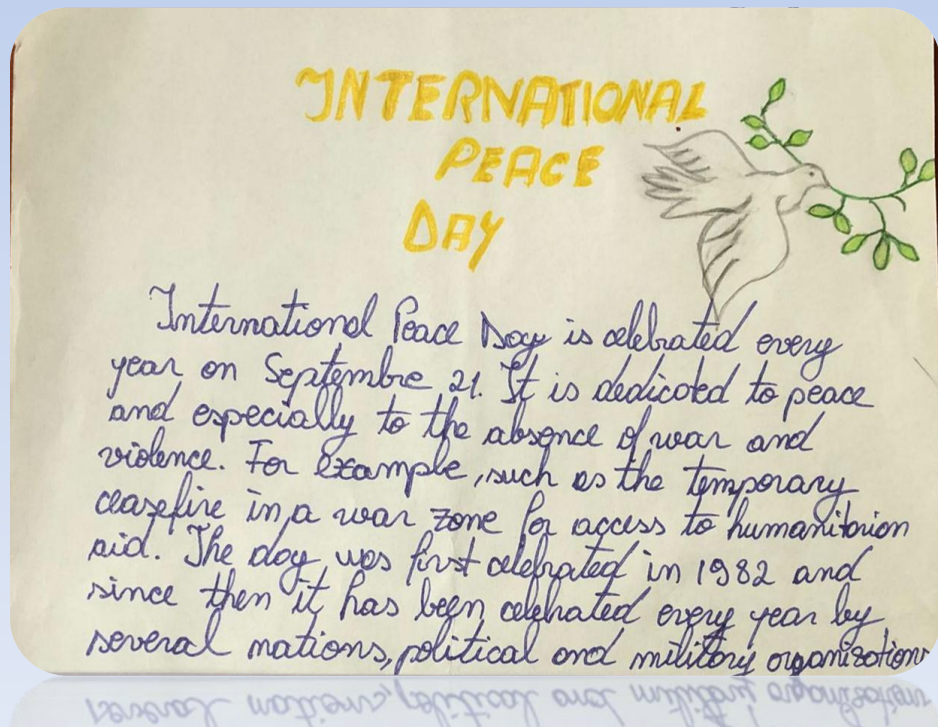 INTERNATIONAL
PEACE
DAY
International Peace Day is celebrated every
year on Septembre 21. It is dedicated to peace
and especially to the absence of war and
violence. For Example, such as the temporary
ceasefire in a war zone for access to humanitarian
aid. The day was first celebrated in 1982 and
since then it has been celebrated every year by
several nations, political and military organizations